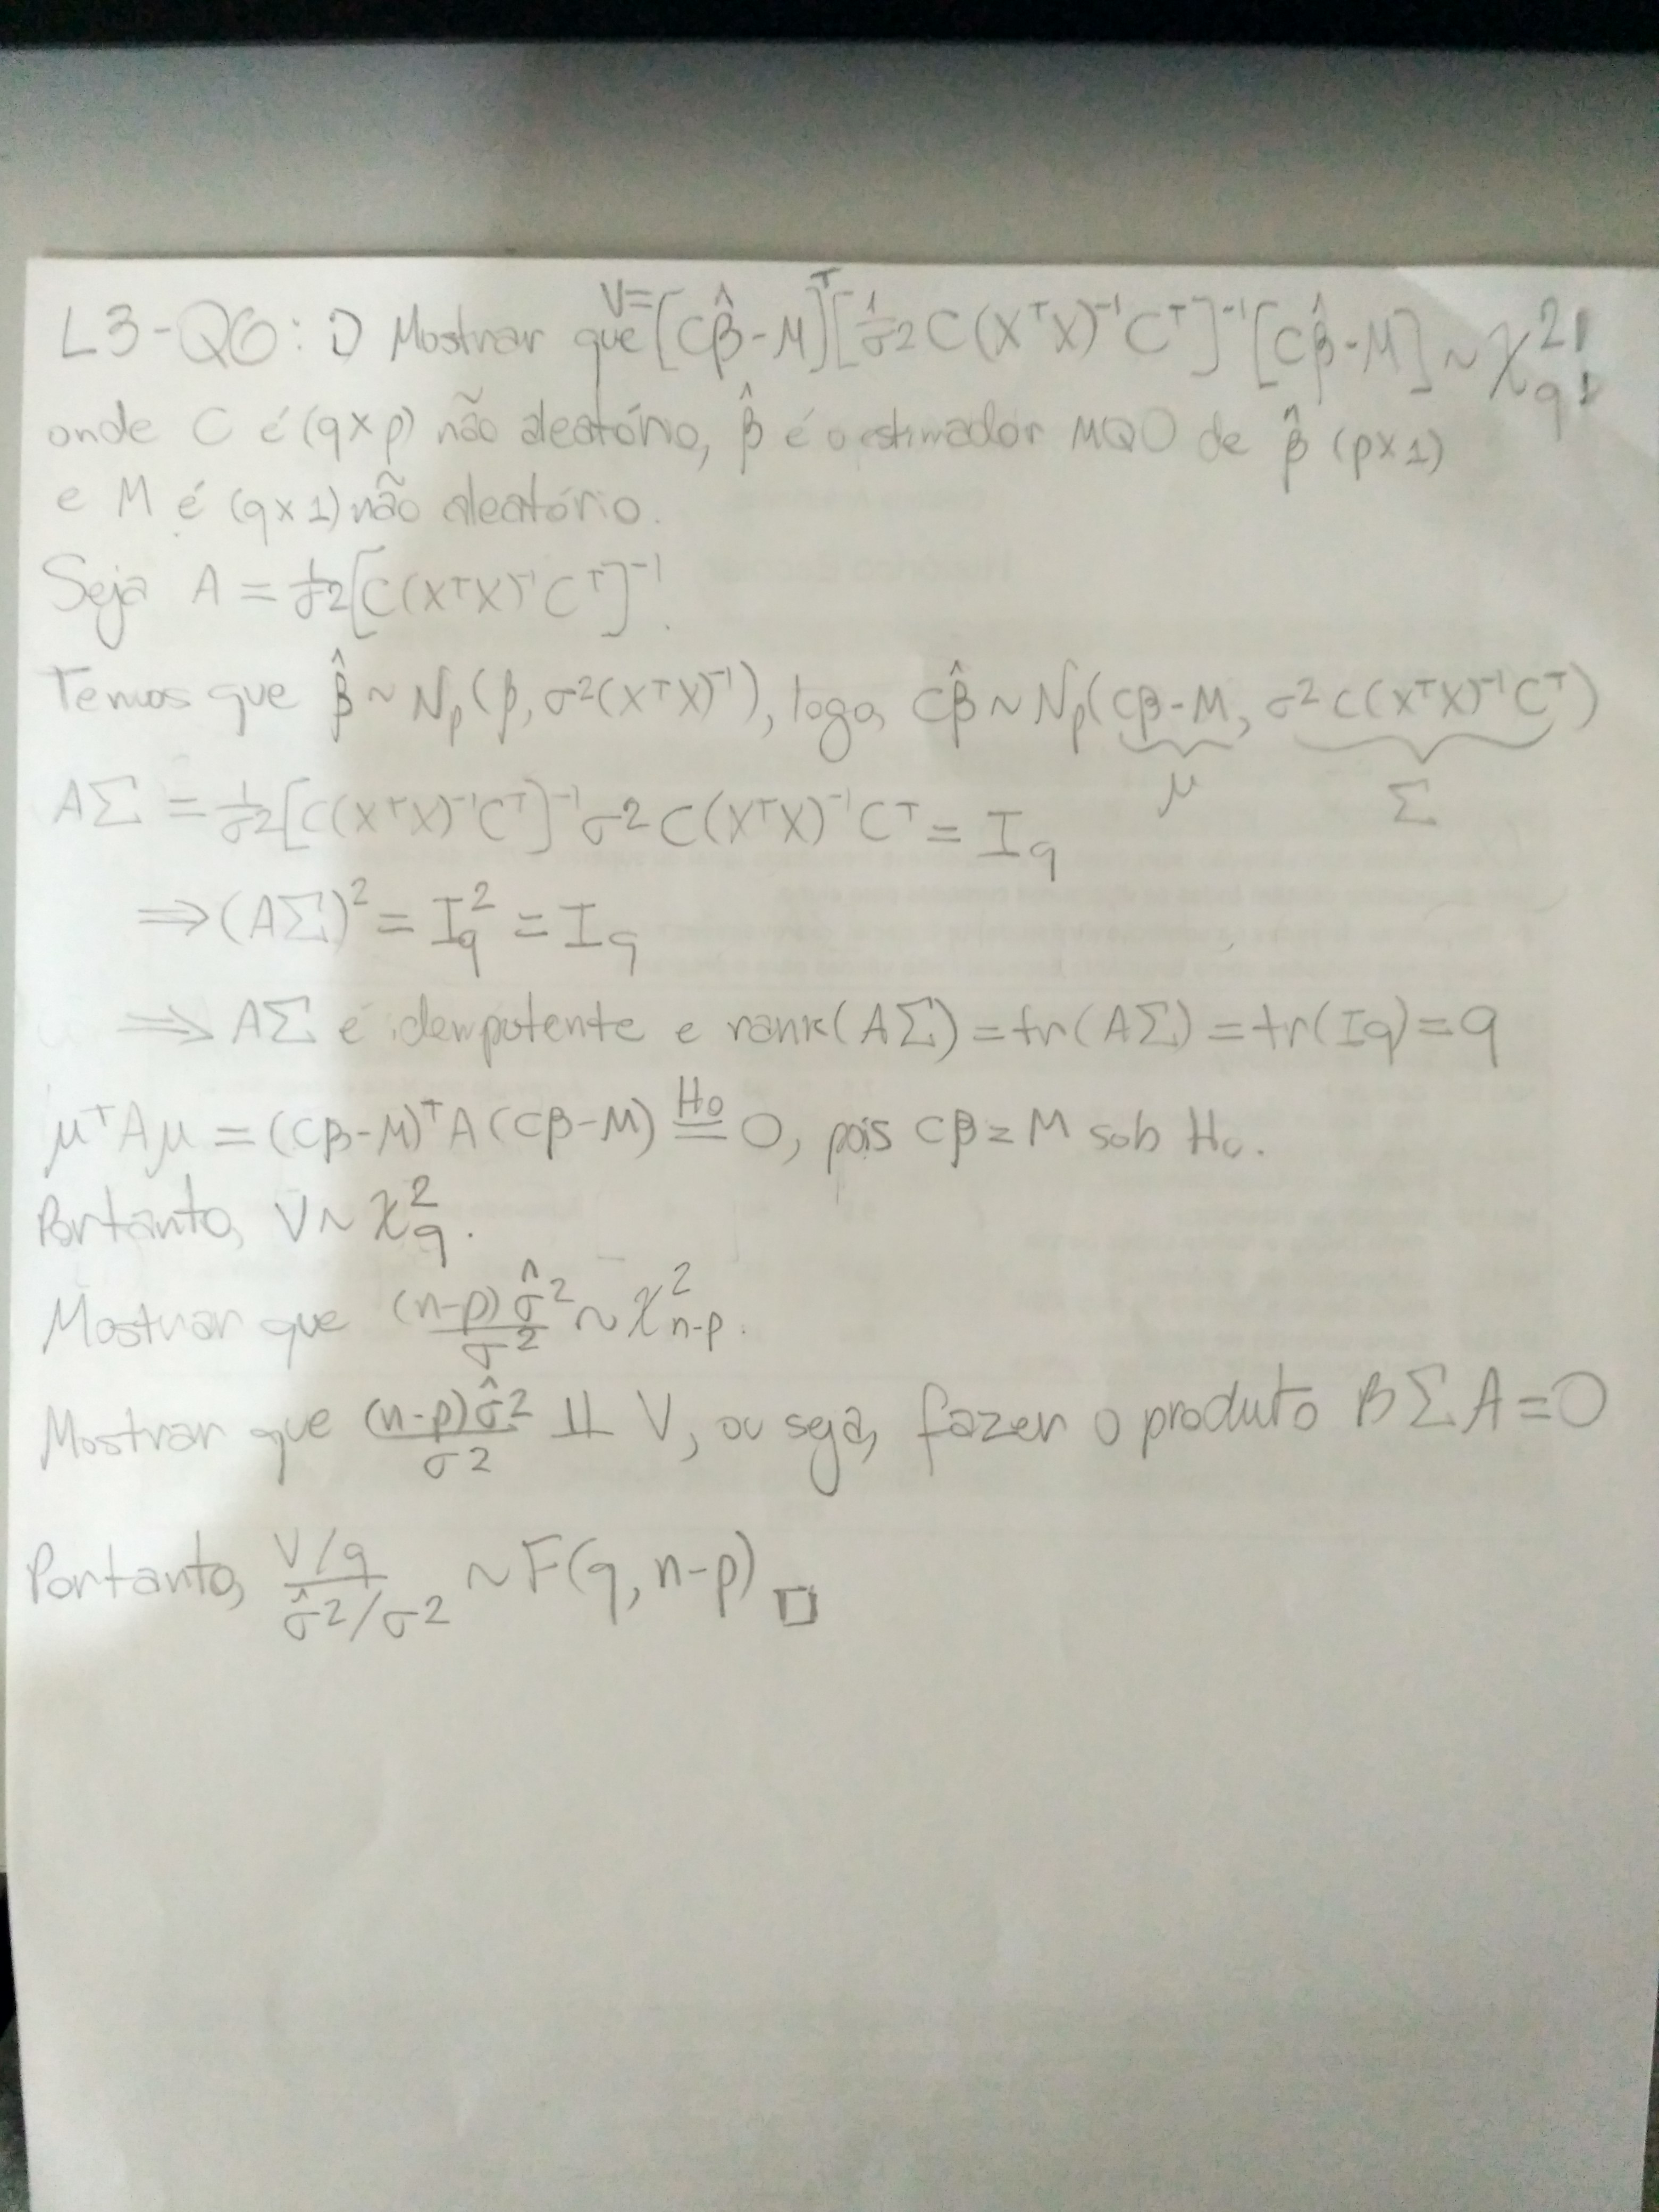 L3-Q6: 1) Mostrar que V=[Cβ̂-M]ᵀ[1/σ² C(XᵀX)⁻¹Cᵀ]⁻¹[Cβ̂-M] ~ χ²_q!
onde C é (q×p) não aleatório, β̂ é o estimador MQO de β̂ (p×1)
e M é (q×1) não aleatório.
Seja A = 1/σ²[C(XᵀX)⁻¹Cᵀ]⁻¹.
Temos que β̂ ~ N_p(β, σ²(XᵀX)⁻¹), logo, Cβ̂ ~ N_p(Cβ-M, σ²C(XᵀX)⁻¹Cᵀ)
μ Σ
AΣ = 1/σ²[C(XᵀX)⁻¹Cᵀ]⁻¹σ²C(XᵀX)⁻¹Cᵀ = I_q
⇒ (AΣ)² = I_q² = I_q
⇒ AΣ é idempotente e rank(AΣ) = tr(AΣ) = tr(I_q) = q
μᵀAμ = (Cβ-M)ᵀA(Cβ-M) =^{H₀} 0, pois Cβ = M sob H₀.
Portanto, V ~ χ²_q.
Mostrar que (n-p)σ̂²/σ² ~ χ²_{n-p}.
Mostrar que (n-p)σ̂²/σ² ⫫ V, ou seja, fazer o produto BΣA = 0
Portanto, (V/q)/(σ̂²/σ²) ~ F(q, n-p) □